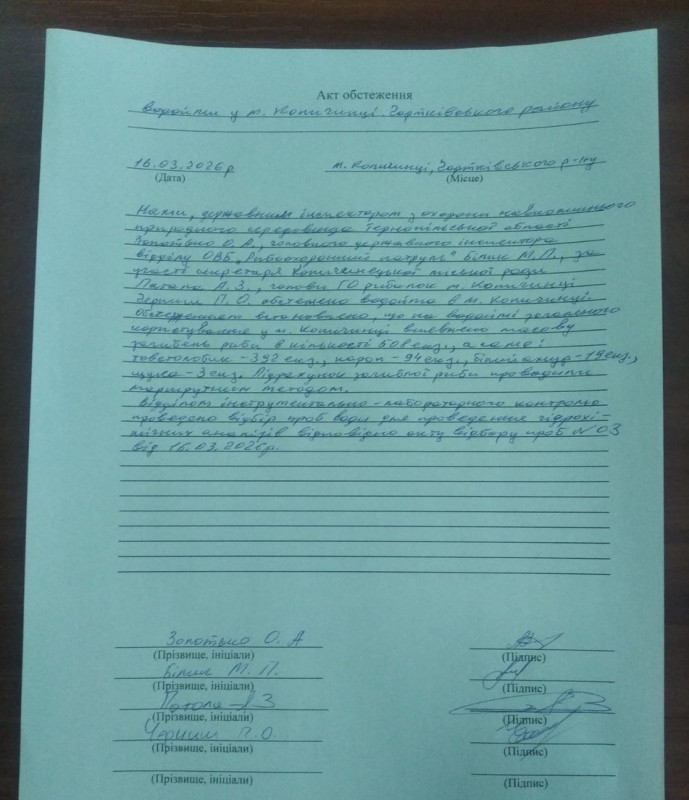 Акт обстеження
водойми у м. Копичинці Чортківського району
16.03.2026р
м. Копичинці, Чортківського р-ну
(Дата)
(Місце)
Нами, державним інспектором з охорони навколишнього
природного середовища Тернопільської області
Золотько О.А., головного державного інспектора
відділу ОВБ "Рибоохоронний патруль" Білик М.П., за
участі секретаря Копичинецької міської ради
Потапа Л.З., голови ГО рибалок м. Копичинці
Черниш П.О. обстежено водойму в м. Копичинці.
Обстеженням встановлено, що на водоймі загального
користування у м. Копичинці виявлено масову
загибель риби в кількості 508 екз., а саме:
товстолобик - 392 екз., короп - 94 екз., білий амур - 19 екз.,
щука - 3 екз. Підрахунок загиблої риби проводили
маршрутним методом.
Відділом інструментально-лабораторного контролю
проведено відбір проб води для проведення гідрохі-
мічних аналізів відповідно акту відбору проб №03
від 16.03.2026р.
Золотько О. А
(Прізвище, ініціали)
(Підпис)
Білик М. П.
(Прізвище, ініціали)
(Підпис)
(Прізвище, ініціали)
(Підпис)
Черниш П.О.
(Прізвище, ініціали)
(Підпис)
(Прізвище, ініціали)
(Підпис)